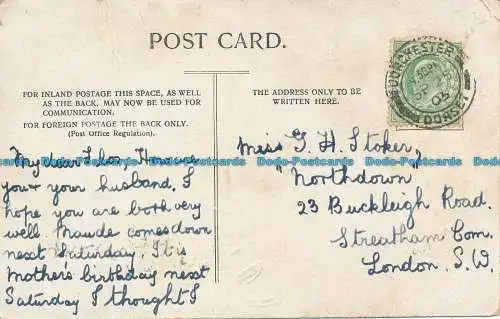 POST CARD.
FOR INLAND POSTAGE THIS SPACE, AS WELL
AS THE BACK, MAY NOW BE USED FOR
COMMUNICATION.
FOR FOREIGN POSTAGE THE BACK ONLY.
(Post Office Regulation).
THE ADDRESS ONLY TO BE
WRITTEN HERE.
DORCHESTER
DORSET
My dear
you & your husband. I
hope you are both very
well. Maude comes down
next Saturday. It is
Mother's birthday next
Saturday I thought I
Miss G. H. Stoker,
"Northdown"
23 Buckleigh Road.
Streatham Com.
London. S.W.
Dodo-Postcards Dodo-Postcards Dodo-Postcards Dodo-Postcards